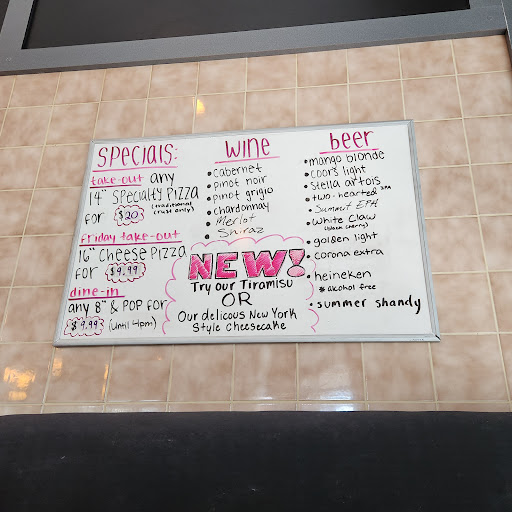 SPECIALS:
take-out any
14" Specialty Pizza
(traditional crust only)
for $20
Friday take-out
16" Cheese Pizza
for $9.99
dine-in
any 8" & POP for
$9.99 (Until 4pm)
wine
• cabernet
• pinot noir
• pinot grigio
• chardonnay
• Merlot
• Shiraz
NEW!
Try our Tiramisu
OR
Our delicous New York
Style cheesecake
beer
• mango blonde
• coors light
• stella artois
• two-hearted IPA
• Summit EPA
• White Claw
(black cherry)
• golden light
• corona extra
• heineken
* alcohol free
• summer shandy